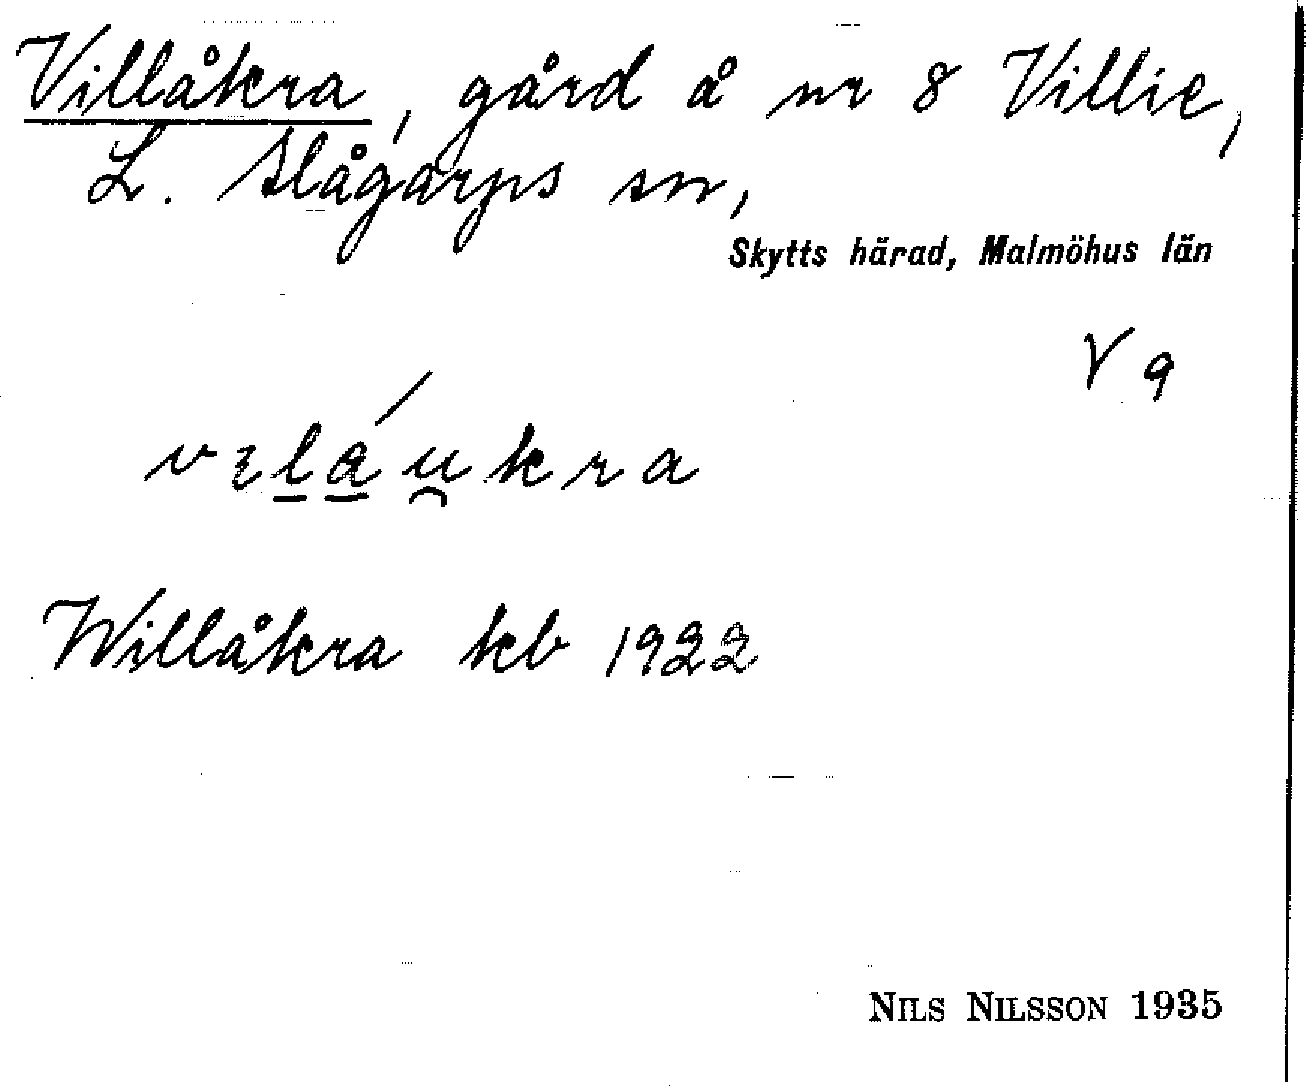 Villåkra, gård å nr 8 Villie,
L. Slågarps sn,
Skytts härad, Malmöhus län
V 9
vɪláu̯kra
Willåkra kb 1922
NILS NILSSON 1935